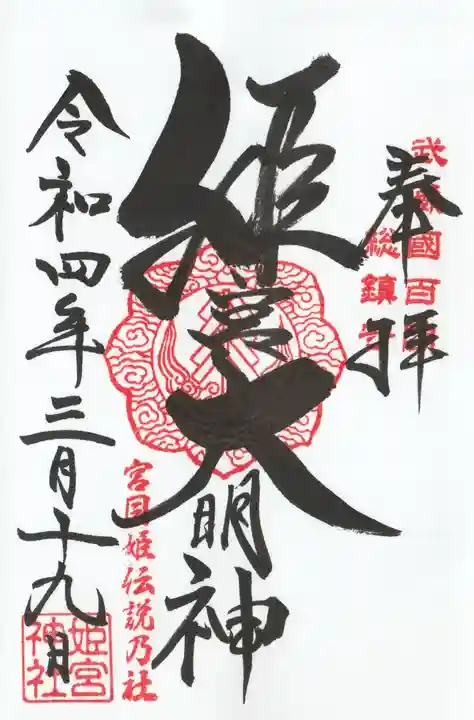 武蔵國百間
総鎮守
奉拝
姫宮大明神
宮目姫伝説乃社
令和四年三月十九日
姫宮
神社